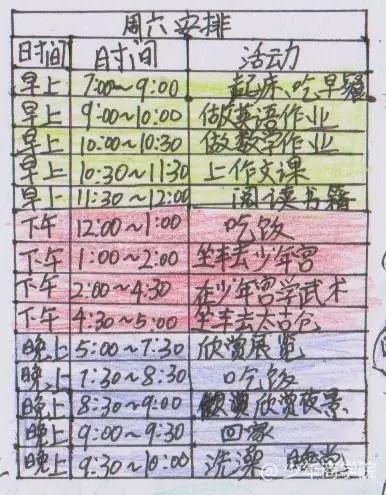 周六安排
日时间 时间 活动
早上 7:00~9:00 起床、吃早餐
早上 9:00~10:00 做英语作业
早上 10:00~10:30 做数学作业
早上 10:30~11:30 上作文课
早上 11:30~12:00 阅读书籍
下午 12:00~1:00 吃饭
下午 1:00~2:00 坐车去少年宫
下午 2:00~4:30 在少年宫学武术
下午 4:30~5:00 坐车去太古仓
晚上 5:00~7:30 欣赏展览
晚上 7:30~8:30 吃饭
晚上 8:30~9:00 欣赏夜景
晚上 9:00~9:30 回家
晚上 9:30~10:00 洗澡